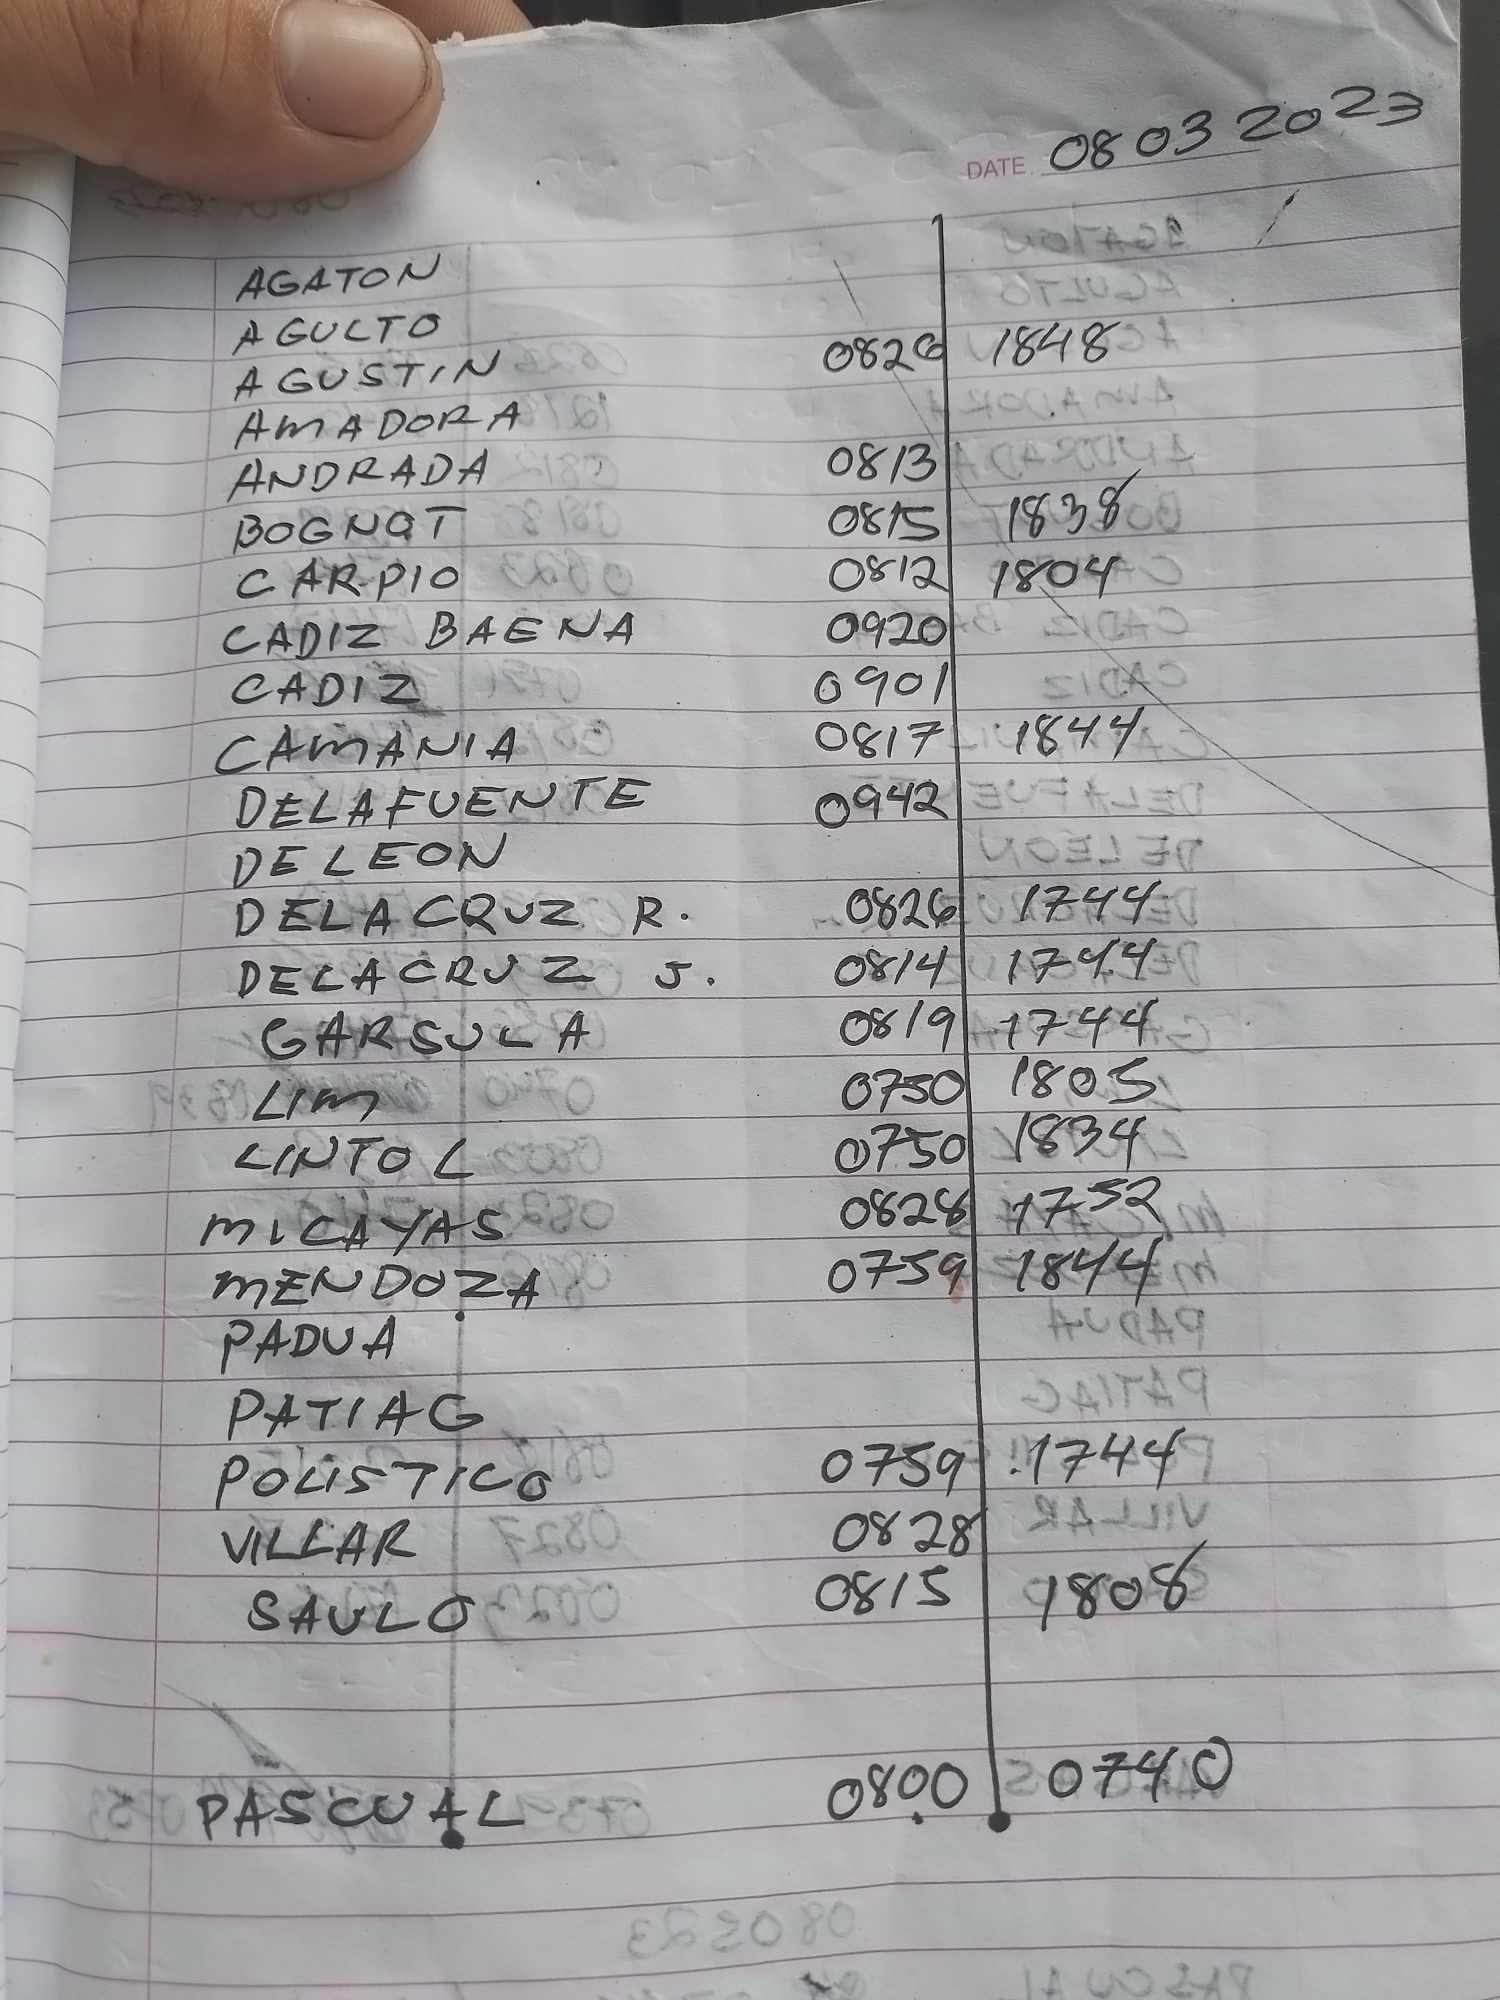 DATE 08 03 2023
AGATON
AGULTO
AGUSTIN 0826 1848
AMADORA
ANDRADA 0813
BOGNOT 0815 1838
CARPIO 0812 1804
CADIZ BAENA 0920
CADIZ 0901
CAMANIA 0817 1844
DELAFUENTE 0942
DE LEON
DELA CRUZ R. 0826 1744
DELACRUZ J. 0814 1744
GARSULA 0819 1744
LIM 0750 1805
LINTOL 0750 1834
MICAYAS 0828 1752
MENDOZA 0759 1844
PADUA
PATIAG
POLISTICO 0759 1744
VILLAR 0828
SAULO 0815 1808
PASCUAL 0800 0740